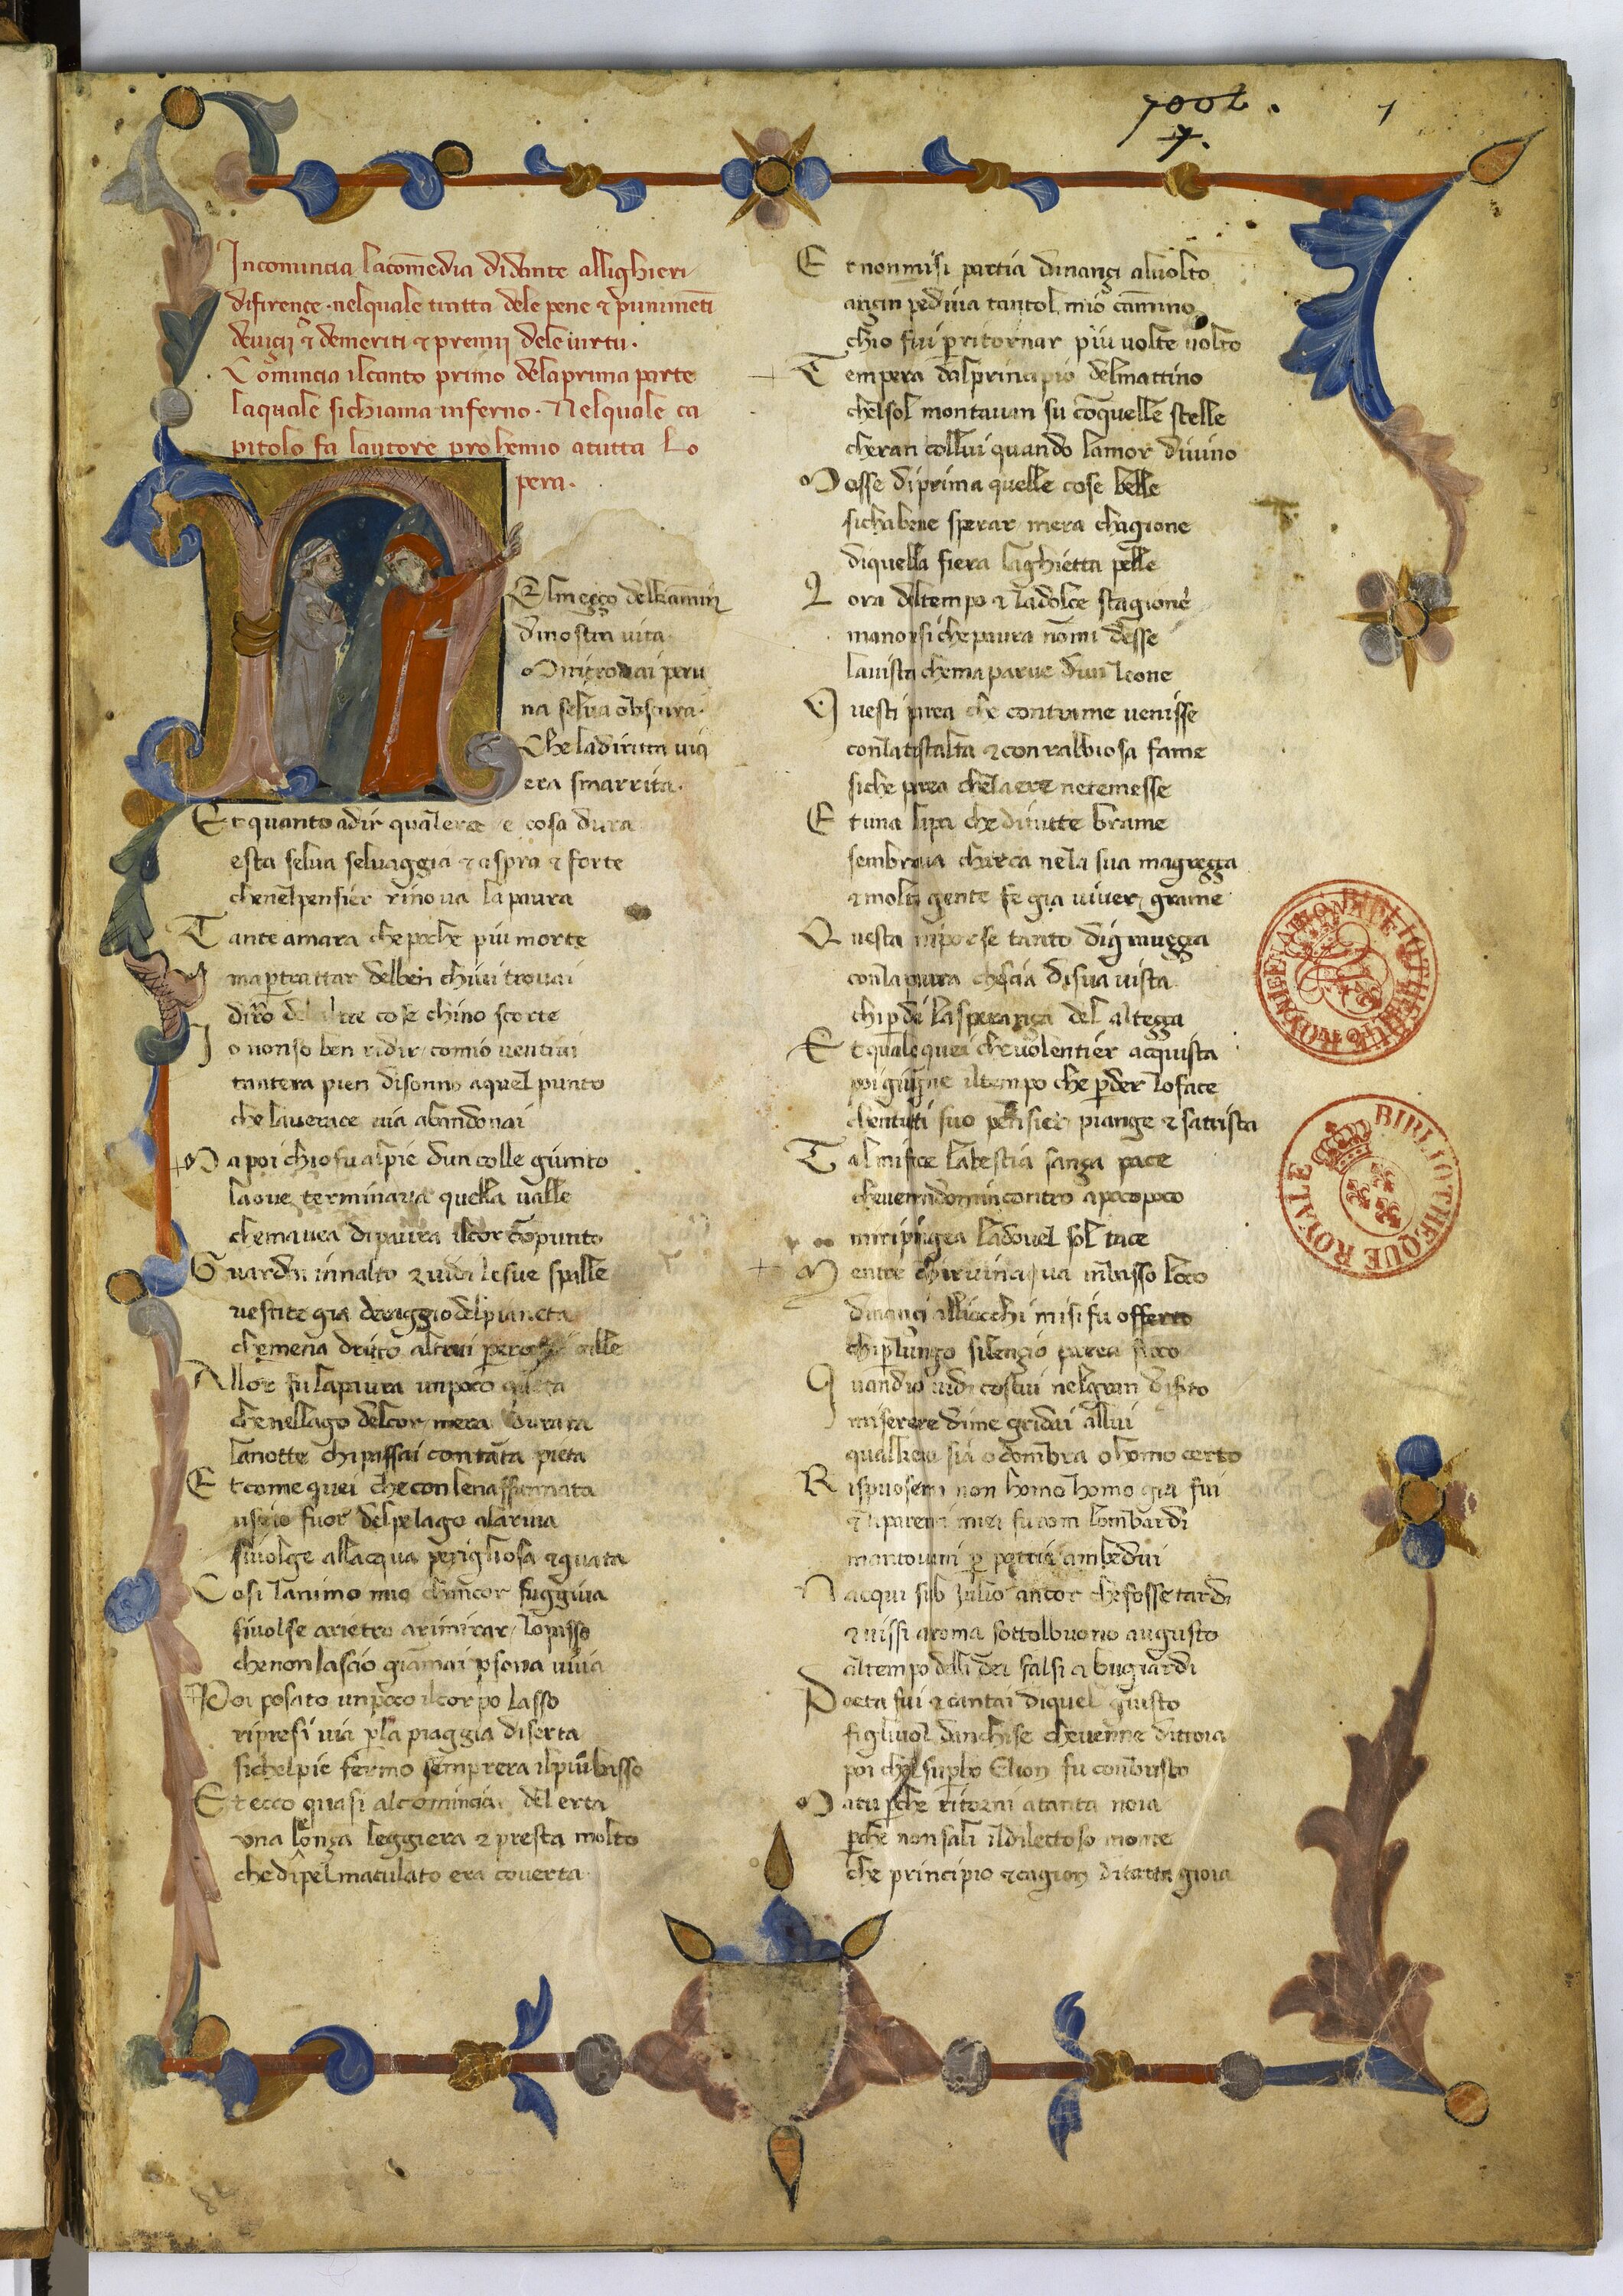 7002.
7.
1
Incomincia lacomedia didante allighieri
difirençe · nelquale tratta dele pene ⁊ punimenti
deuiçii ⁊ demeriti ⁊ premii dele uirtu.
Comincia ilcanto primo delaprima parte
laquale sichiama inferno. Nelquale ca
pitolo fa lautore prohemio atutta Lo
pera.
NElmeçço delkamin
dinostra uita
Mitrouai peru
na selua obscura.
Che ladiritta uia
era smarrita.
Et quanto adir qualera e cosa dura
esta selua seluaggia ⁊ aspra ⁊ forte
chenelpensier rinoua la paura
Tanteamara che poche piu morte
mapertrattar delben chiui trouai
diro del altre cose chino scorte
Io nonso ben ridir comio uentrai
tantera pien disonno aquel punto
che lauerace uia abandonai
Ma poi chiofu alpie dun colle giunto
laoue terminaua quella ualle
chemauea dipaura ilcor conpunto
Guardai innalto ⁊ uidi lesue spalle
uestite gia deraggi delpianeta
chemena dricto altrui per calle
Allor fu lapaura unpoco queta
chenellago delcor mera durata
lanotte chi passai contanta pieta
Et come quei che con lena affannata
uscito fuor delpelago alariua
siuolge allacqua perigliosa ⁊ guata
Cosi lanimo mio chancor fuggiua
siuolse arietro arimirar lopasso
chenon lascio giamai persona uiua
Poi posato unpoco ilcorpo lasso
ripresi uia perla piaggia diserta
sichelpie fermo semprera ilpiu basso
Et ecco quasi alcominciar del erta
una lonça leggiera ⁊ presta molto
che di pel maculato era couerta
Et nonmisi partia dinançi aluolto
ançin pediua tantol mio camino
chio fui perritornar piu uolte uolto
Tempera dalprincipio delmattino
chelsol montauan su conquelle stelle
cheran collui quando lamor diuino
Mosse diprima quelle cose belle
sichabene sperar mera chagione
diquella fiera laghietta pelle
Lora deltempo ⁊ ladolce stagione
manonsi che paura nonmi desse
lauista chemaparue dun leone
Questi parea che contrame uenisse
conlatestalta ⁊ con rabbiosa fame
siche parea chelaere netemesse
Et una lupa che ditutte brame
sembraua charca nela sua magreçça
⁊ molta gente fe gia uiuer grame
Questa miporse tanto digraueçça
conla paura chuscia disua uista
chiperde lasperança del alteçça
Et quale quei cheuolentier acquista
poi giugne iltempo che perder loface
chentutti suo pensier piange ⁊ satrista
Tal mifece labestia sança pace
cheuenendomincontro apocopoco
miripingea ladouel sol tace
Mentre chi ruina ua inbasso loco
dinançi alliocchi misi fu offerto
chiperlungo silençio parea fioco
Quandio uidi costui nelgran diserto
miserere dime gridai allui
qualkeu sia odombra o homo certo
Rispuosemi non homo homo gia fui
⁊ liparenti miei furom lombardi
mantouani per patria ambedui
Nacqui sub Julio ancor chefosse tardi
⁊ uissi aroma sottolbuono augusto
altempo delli dei falsi ⁊ bugiardi
Poeta fui ⁊ cantai diquel giusto
figliuol danchise cheuenne ditroia
poi chelsuperbo Elion fu conbusto
Matu perche ritorni atanta noia
perche nonsali ildilectoso monte
che principio ⁊ cagion ditutta gioia
BIBLIOTHEQUE ROYALE